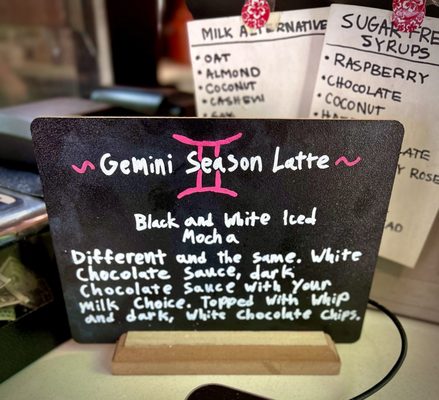 MILK ALTERNATIVE
• OAT
• ALMOND
• COCONUT
• CASHEW
SUGAR FREE
SYRUPS
• RASPBERRY
• CHOCOLATE
• COCONUT
~ Gemini Season Latte ~
Black and White Iced
Mocha
Different and the same. White
Chocolate Sauce, dark
Chocolate Sauce with your
Milk Choice. Topped with Whip
and dark, White Chocolate Chips.